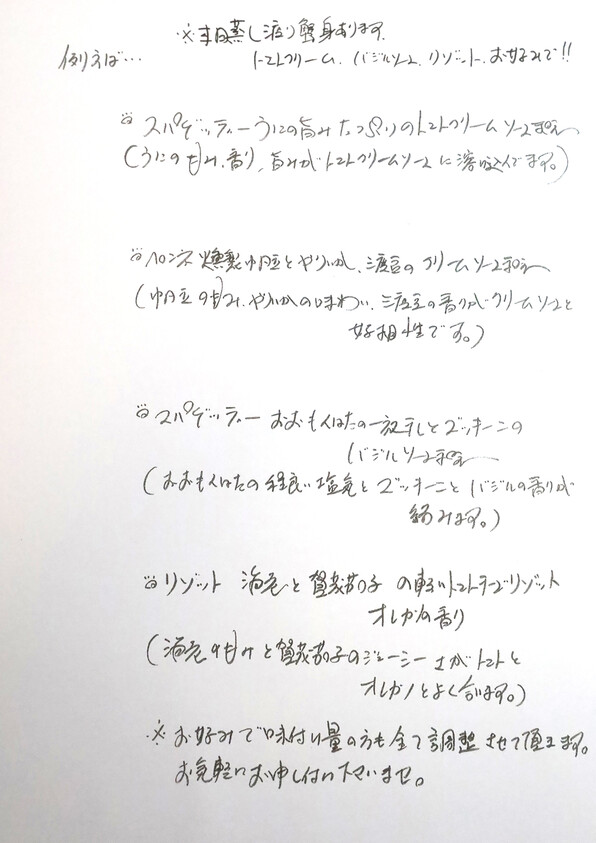 ※本日蒸し渡り蟹身あります。
例えば… トマトクリーム、バジルソース、リゾット、お好みで!!
スパゲッティー うにの旨みたっぷりのトマトクリームソース
(うにの甘み、香り、旨みがトマトクリームソースに溶け込んでます。)
ペンネ 燻製帆立とやりいか、三度豆のクリームソース
(帆立の甘み、やりいかの味わい、三度豆の香りがクリームソースと
好相性です。)
スパゲッティー おおもんはたの一夜干しとズッキーニの
バジルソース
(おおもんはたの程良い塩気とズッキーニとバジルの香りが
絡みます。)
リゾット 海老と賀茂茄子の軽いトマトチーズリゾット
オレガノの香り
(海老の甘みと賀茂茄子のジューシーさがトマトと
オレガノとよく合います。)
※お好みで味付け、量の方も全て調整させて頂きます。
お気軽にお申し付け下さいませ。